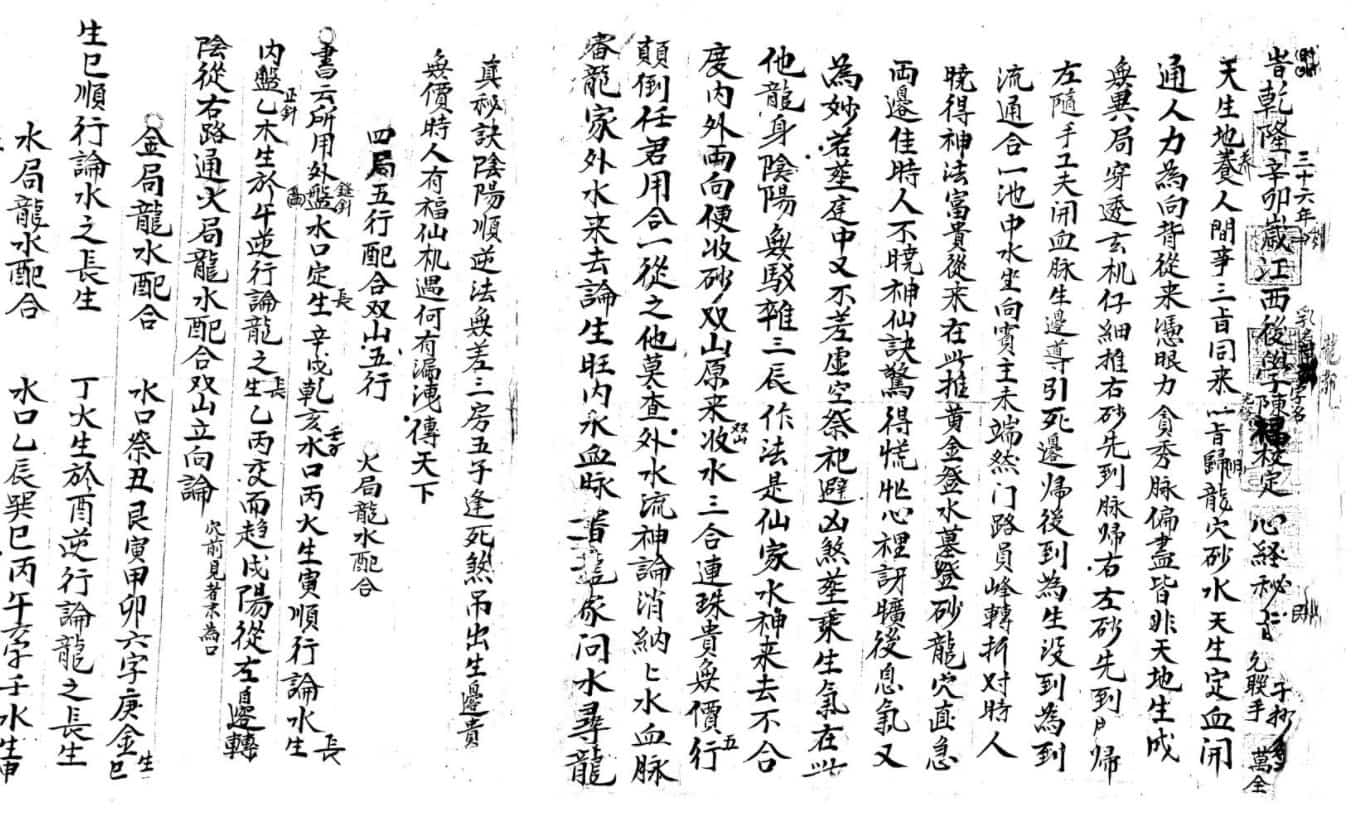 三十六年
旹乾隆辛卯歲江西後學陳福校定 心経秘旨 允聮手 子抄 萬全
天生地養人間事三旨同来一旨歸龍穴砂水天生定血開
通人力為向背從来憑眼力貪秀脉偏盡皆非天地生成
無異局穿透玄机仔細推右砂先到脉帰右左砂先到脉帰
左隨手工夫開血脉生邊導引死邊帰後到為生没到為到
流通合一池中水坐向賓主未端然门路員峰轉折对時人
曉得神法富貴從来在此推黄金登水墓登砂龍穴直急
両邊佳時人不曉神仙訣驚得慌忙心裡訝曠後息氣又
為妙若塟庭中又不差虛空祭祀避凶煞塟乗生氣在此
他龍身陰陽無駁雜三辰作法是仙家水神来去不合
度内外両向便收砂双山原来收水三合連珠貴無價行五
顛倒任君用合一從之他莫查外水流神論消納匕水血脉
審龍家外水来去論生旺内水血脉 龍家问水尋龍
真秘訣陰陽順逆法無差二房五子逢死煞吊出生邊貴
無價時人有福仙机遇何有漏洩傳天下
四局五行配合双山五行 火局龍水配合
書云所用外盤縫針水口定生長辛戌乾亥壬子水口丙火生寅順行論水生長
内盤正針乙木生於午逆行論龍之生長乙丙交而趋戌陽從左邊轉
陰從右路通火局龍水配合双山立向論 穴前見者不為口
金局龍水配合 水口癸丑艮寅甲卯六字庚金生巳
生巳順行論水之長生 丁火生於酉逆行論龍之長生
水局龍水配合 水口乙辰巽巳丙午六字壬水生申